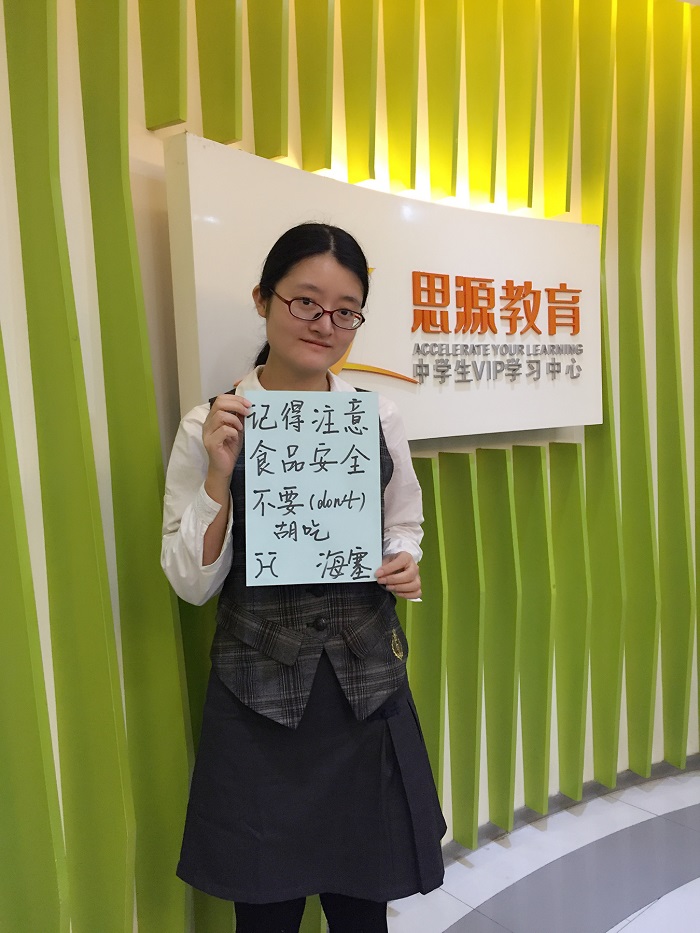 思源教育
ACCELERATE YOUR LEARNING
中学生VIP学习中心
记得注意
食品安全
不要(don't)
胡吃
海塞